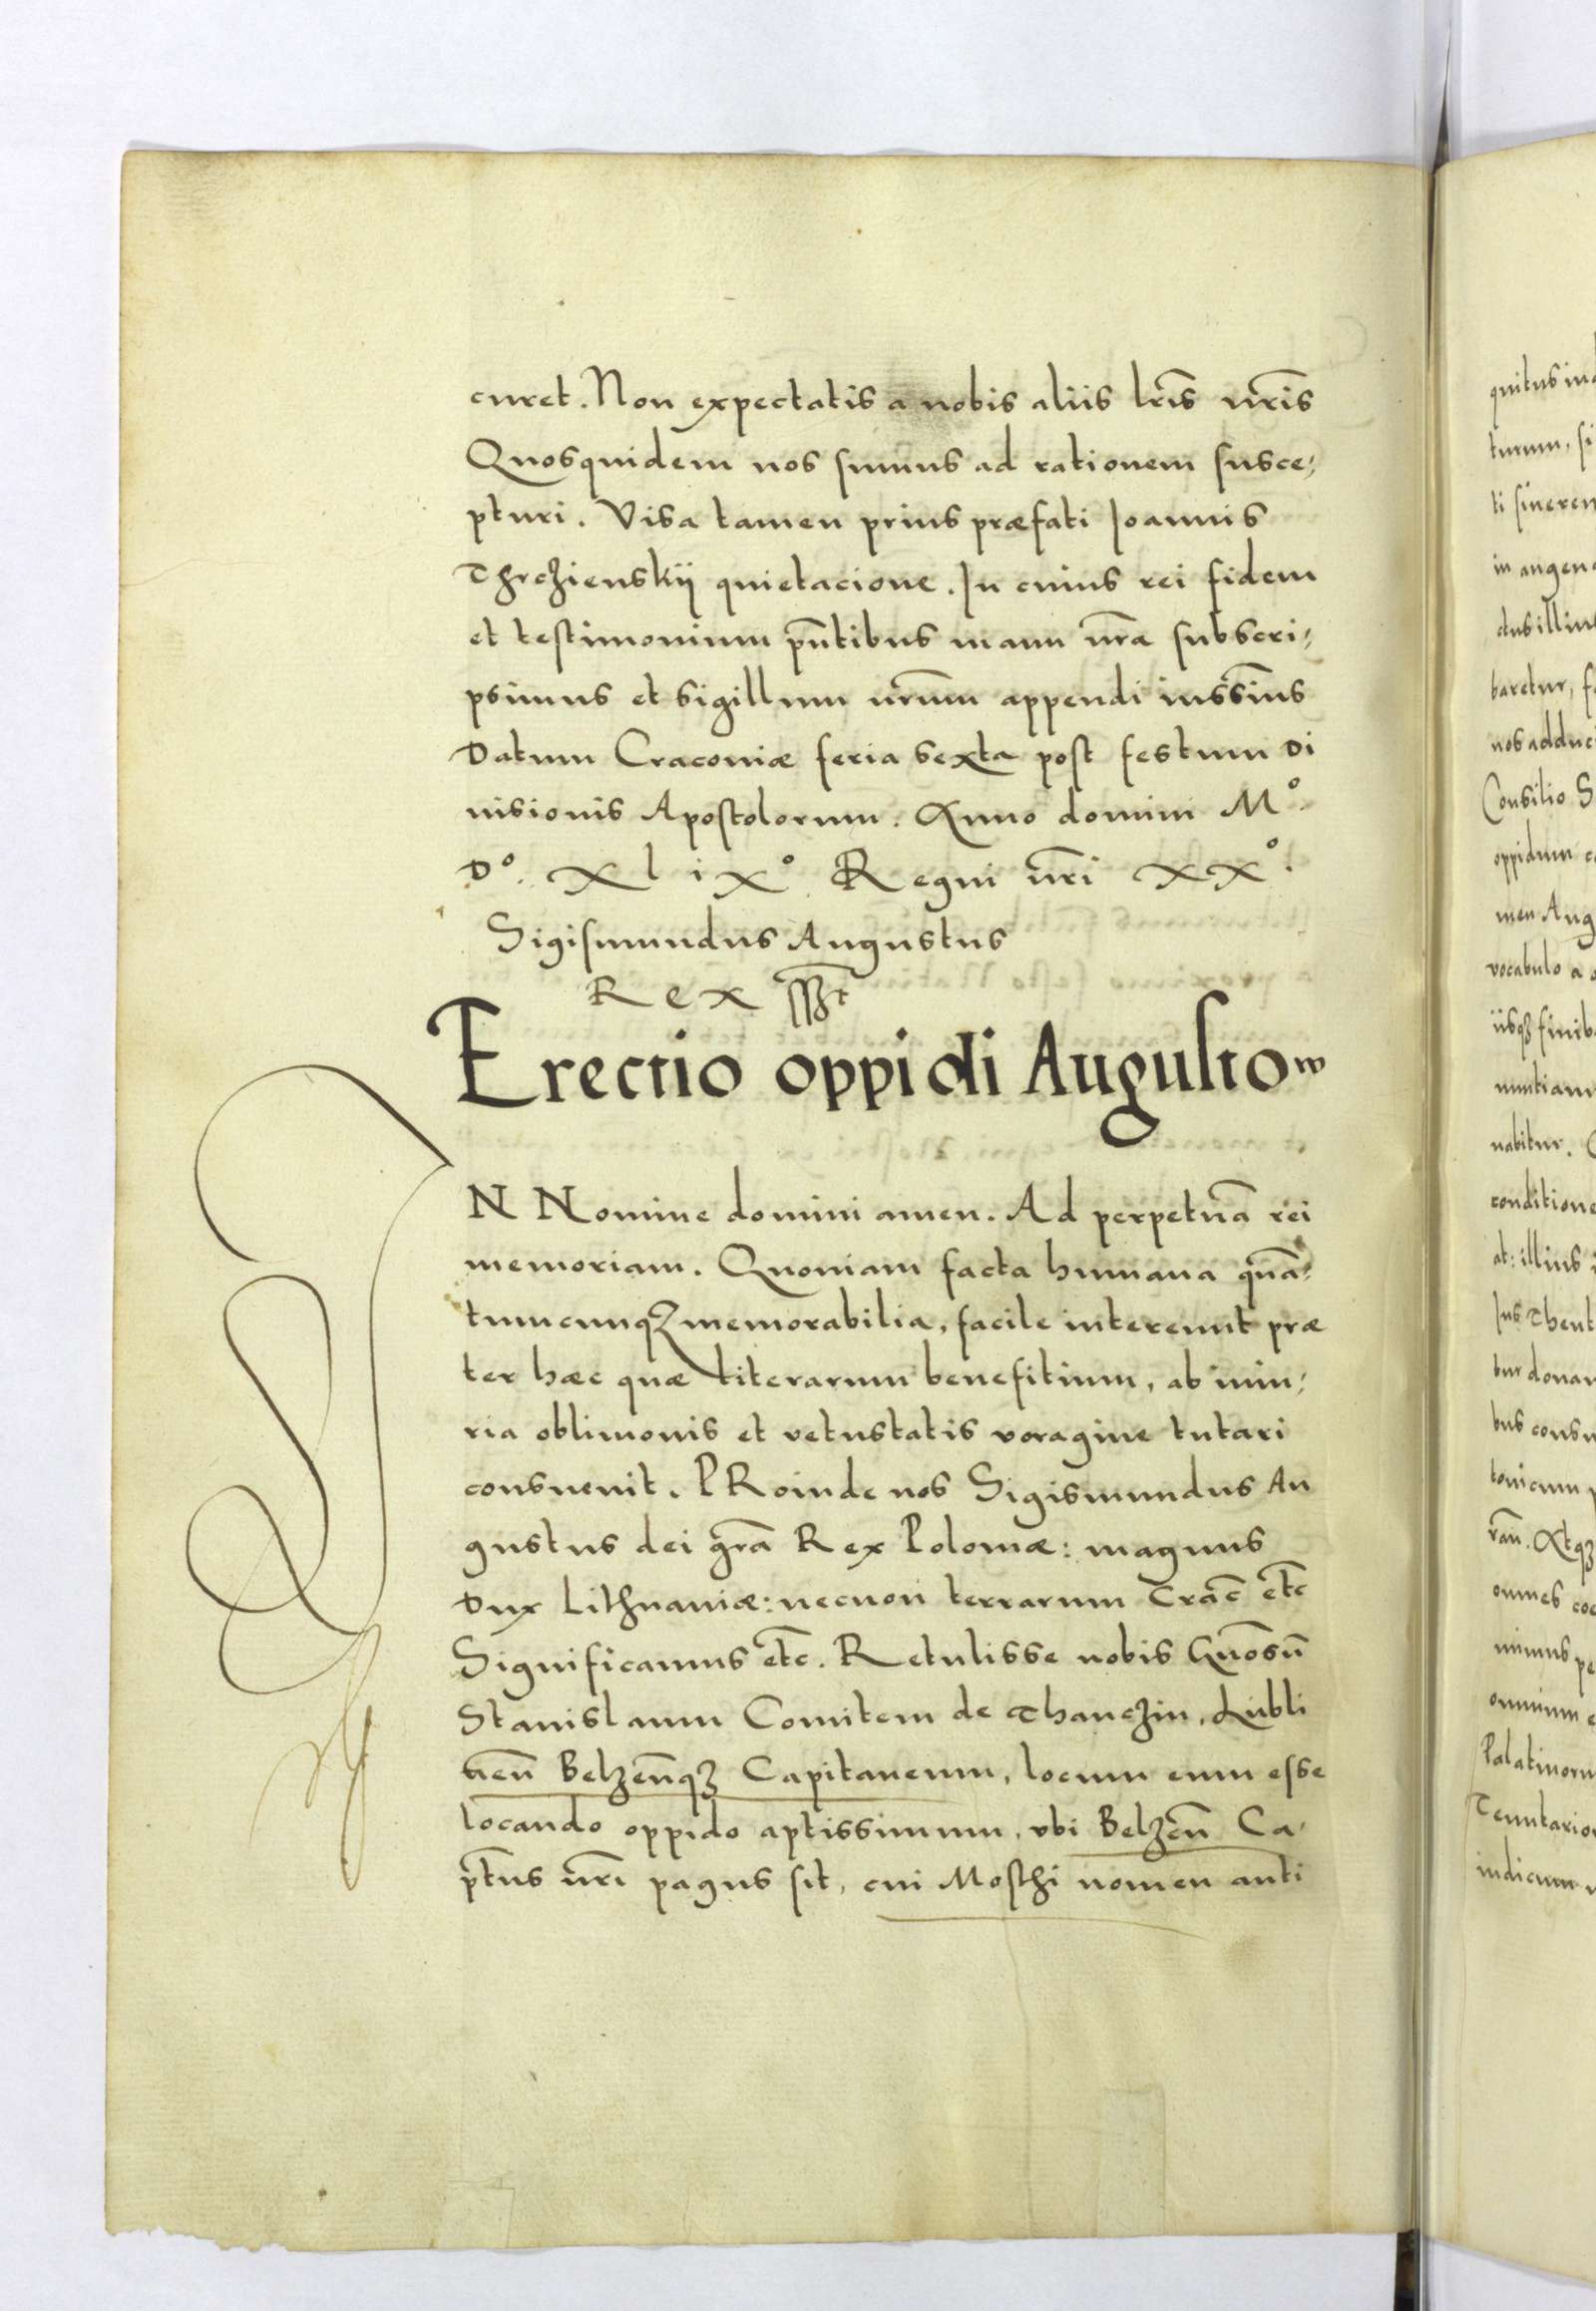 curet. Non expectatis a nobis aliis lr̃is nr̃is
Quosquidem nos sumus ad rationem susce⸗
pturi. Visa tamen prius præfati Joannis
Thrczienskij quietacione. In cuius rei fidem
et testimonium pñtibus manu nr̃a subscri⸗
psimus et sigillum nr̃um appendi iussimus
Datum Cracoviæ feria sexta post festum Di
uisionis Apostolorum. Anno domini M°.
D°. XliX°. Regni nr̃i XX°.
Sigismundus Augustus
Rex sszt
Erectio oppidi Augusto
IN Nomine domini amen. Ad perpetuã rei
memoriam. Quoniam facta humana quã⸗
tumcunqꝫ memorabilia, facile intereunt præ
ter hæc quæ literarum benefitium, ab iniu⸗
ria obliuionis et vetustatis voragine tutari
consueuit. PRoinde nos Sigismundus Au
gustus dei gr̃a Rex Poloniæ: magnus
Dux Lithuaniæ: necnon terrarum Crac̃ etc̃
Significamus etc̃. Retulisse nobis Gnõsũ
Stanislaum Comitem de Thanczin, Lubli
neñ Belzeñqꝫ Capitaneum, locum eum esse
locando oppido aptissimum, vbi Belzeñ Ca⸗
pt̃us nr̃i pagus sit, cui Moschi nomen anti
quitus in
turum, si
ti sineren
in augen
dus illius
baretur, f
nos adduc
Consilio S
oppidum c
men Aug
vocabulo a
iisqꝫ finib
nuntiam
nabitur.
conditione
at: illius
Jus Theut
bus consu
tonicum
omnes
nimus pe
omnium
Palatinoru
Tenutario
iudicum